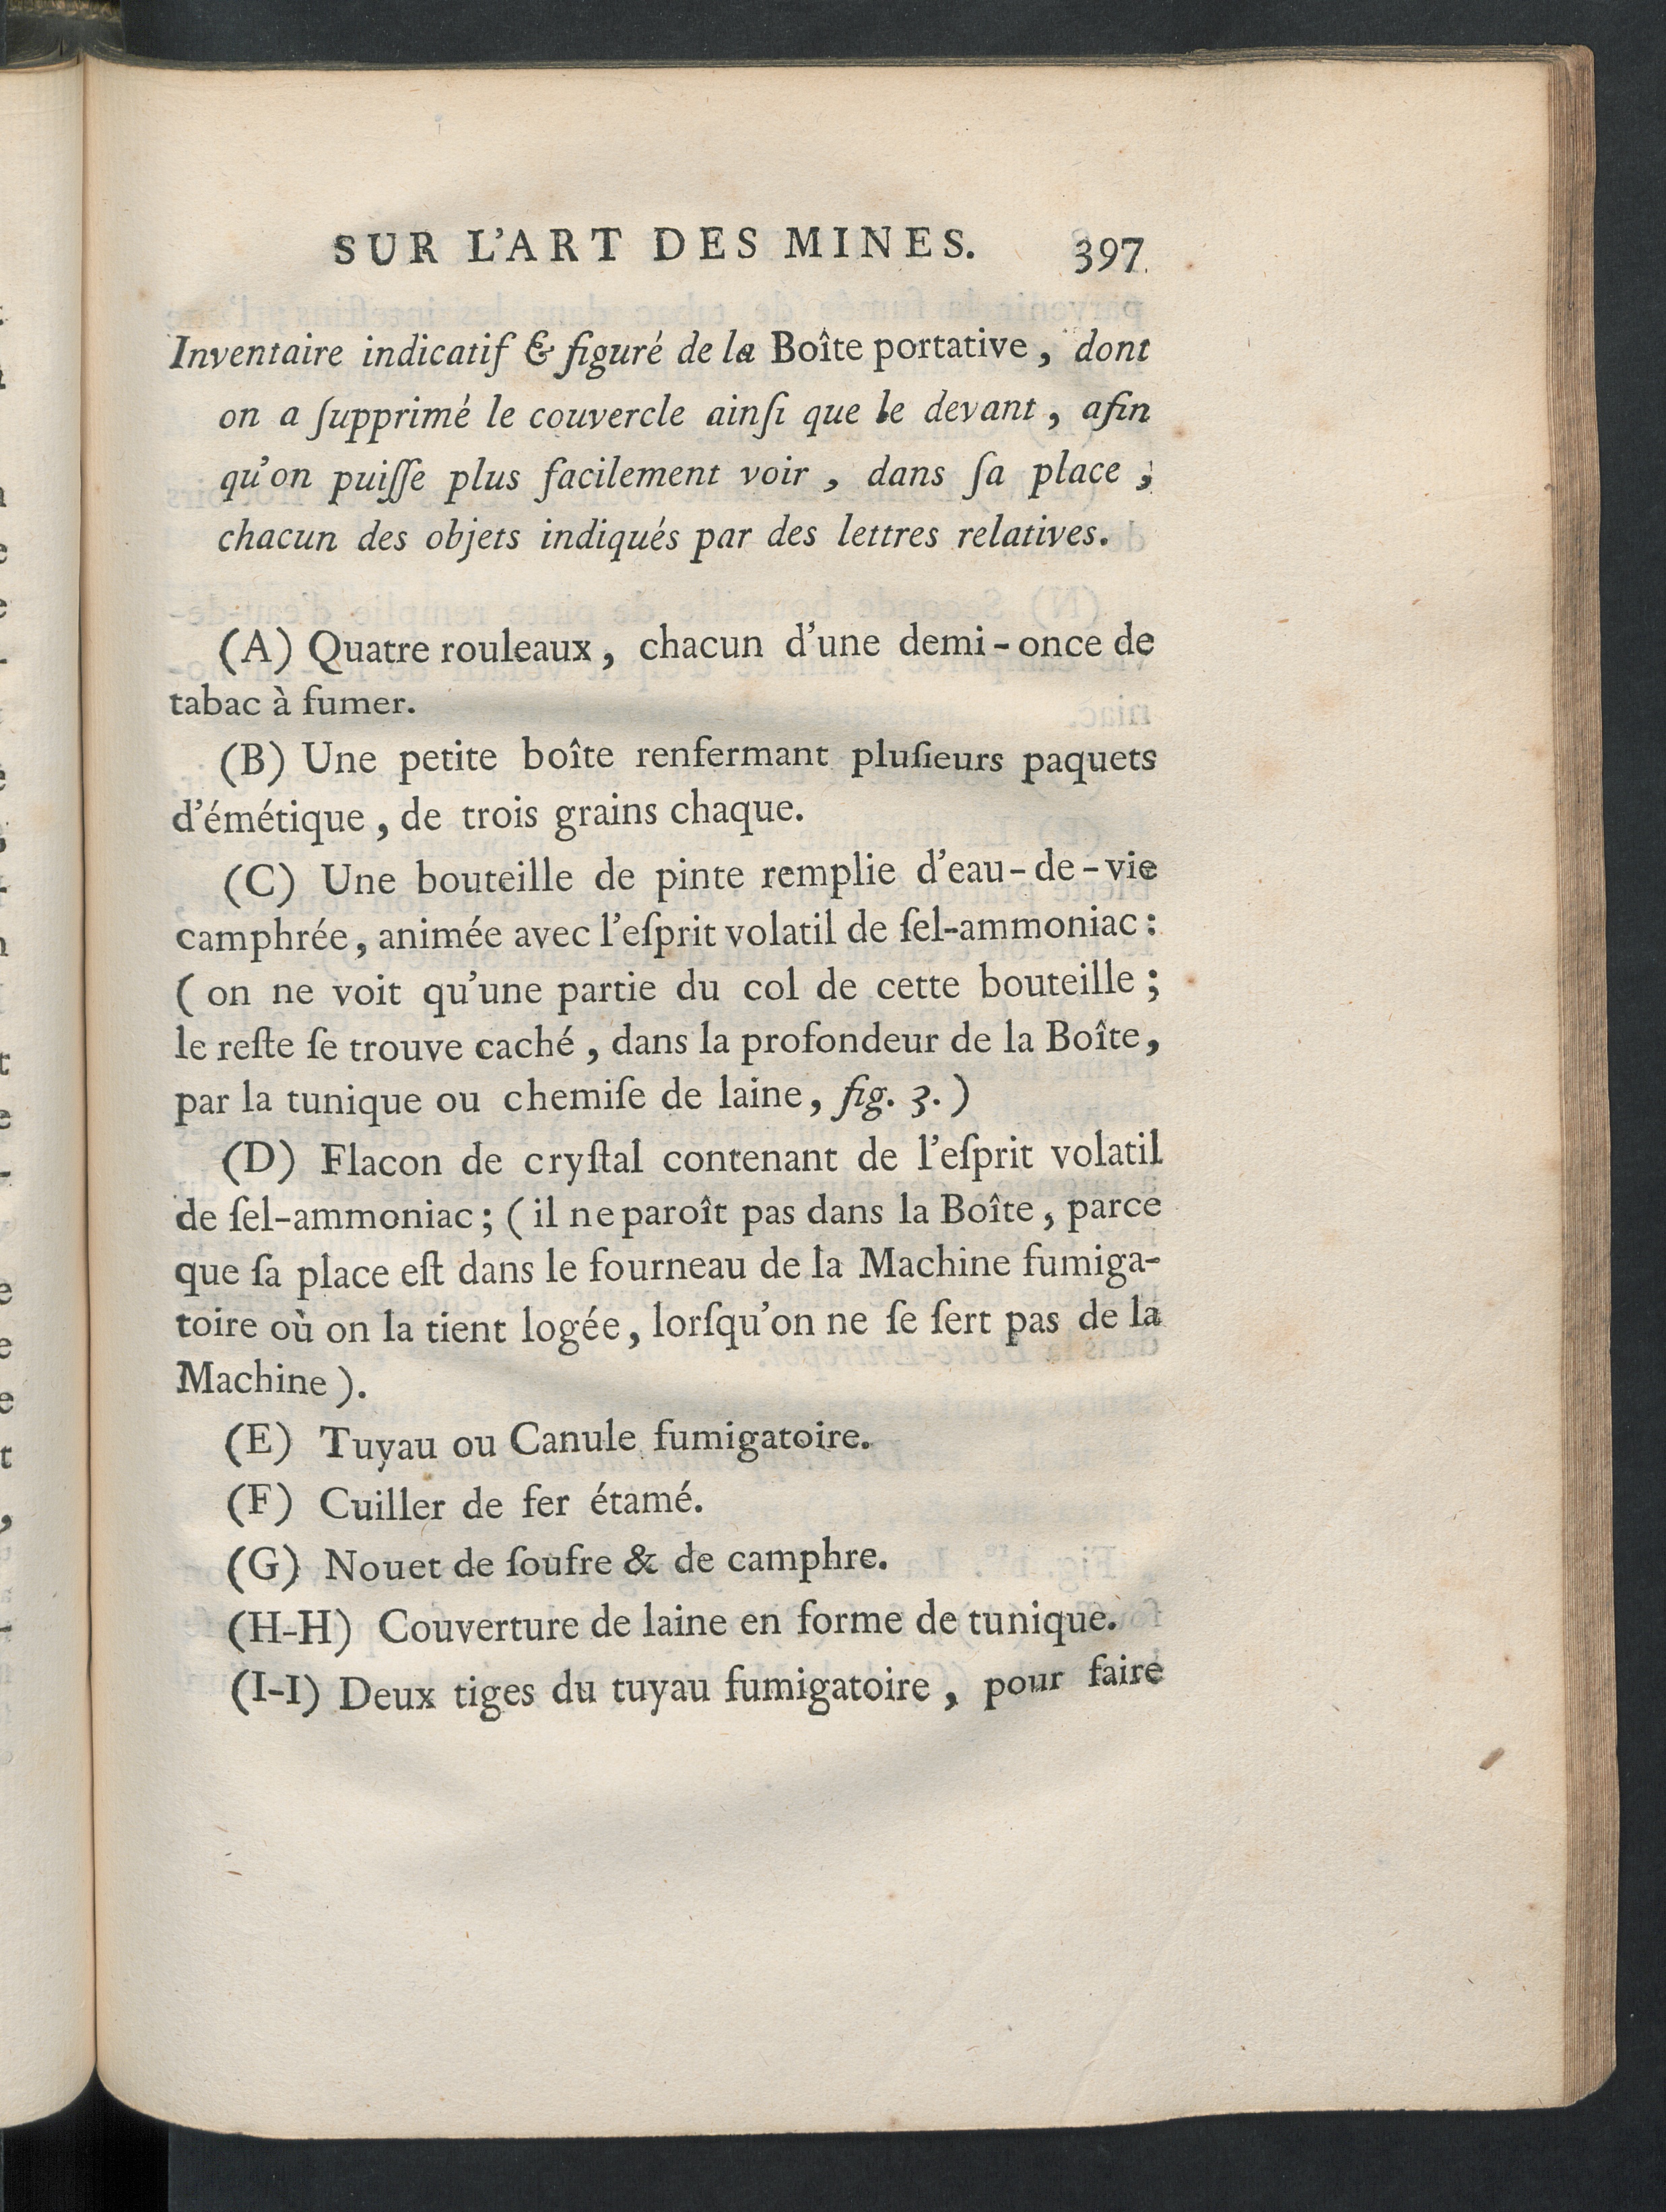 SUR L'ART DES MINES. 397
Inventaire indicatif & figuré de la Boîte portative, dont
on a ſupprimé le couvercle ainſi que le devant, afin
qu'on puiſſe plus facilement voir, dans ſa place,
chacun des objets indiqués par des lettres relatives.
(A) Quatre rouleaux, chacun d'une demi-once de
tabac à fumer.
(B) Une petite boîte renfermant pluſieurs paquets
d'émétique, de trois grains chaque.
(C) Une bouteille de pinte remplie d'eau-de-vie
camphrée, animée avec l'eſprit volatil de ſel-ammoniac:
(on ne voit qu'une partie du col de cette bouteille;
le reſte ſe trouve caché, dans la profondeur de la Boîte,
par la tunique ou chemiſe de laine, fig. 3.)
(D) Flacon de cryſtal contenant de l'eſprit volatil
de ſel-ammoniac; (il ne paroît pas dans la Boîte, parce
que ſa place eſt dans le fourneau de la Machine fumiga-
toire où on la tient logée, lorſqu'on ne ſe ſert pas de la
Machine).
(E) Tuyau ou Canule fumigatoire.
(F) Cuiller de fer étamé.
(G) Nouet de ſoufre & de camphre.
(H-H) Couverture de laine en forme de tunique.
(I-I) Deux tiges du tuyau fumigatoire, pour faire